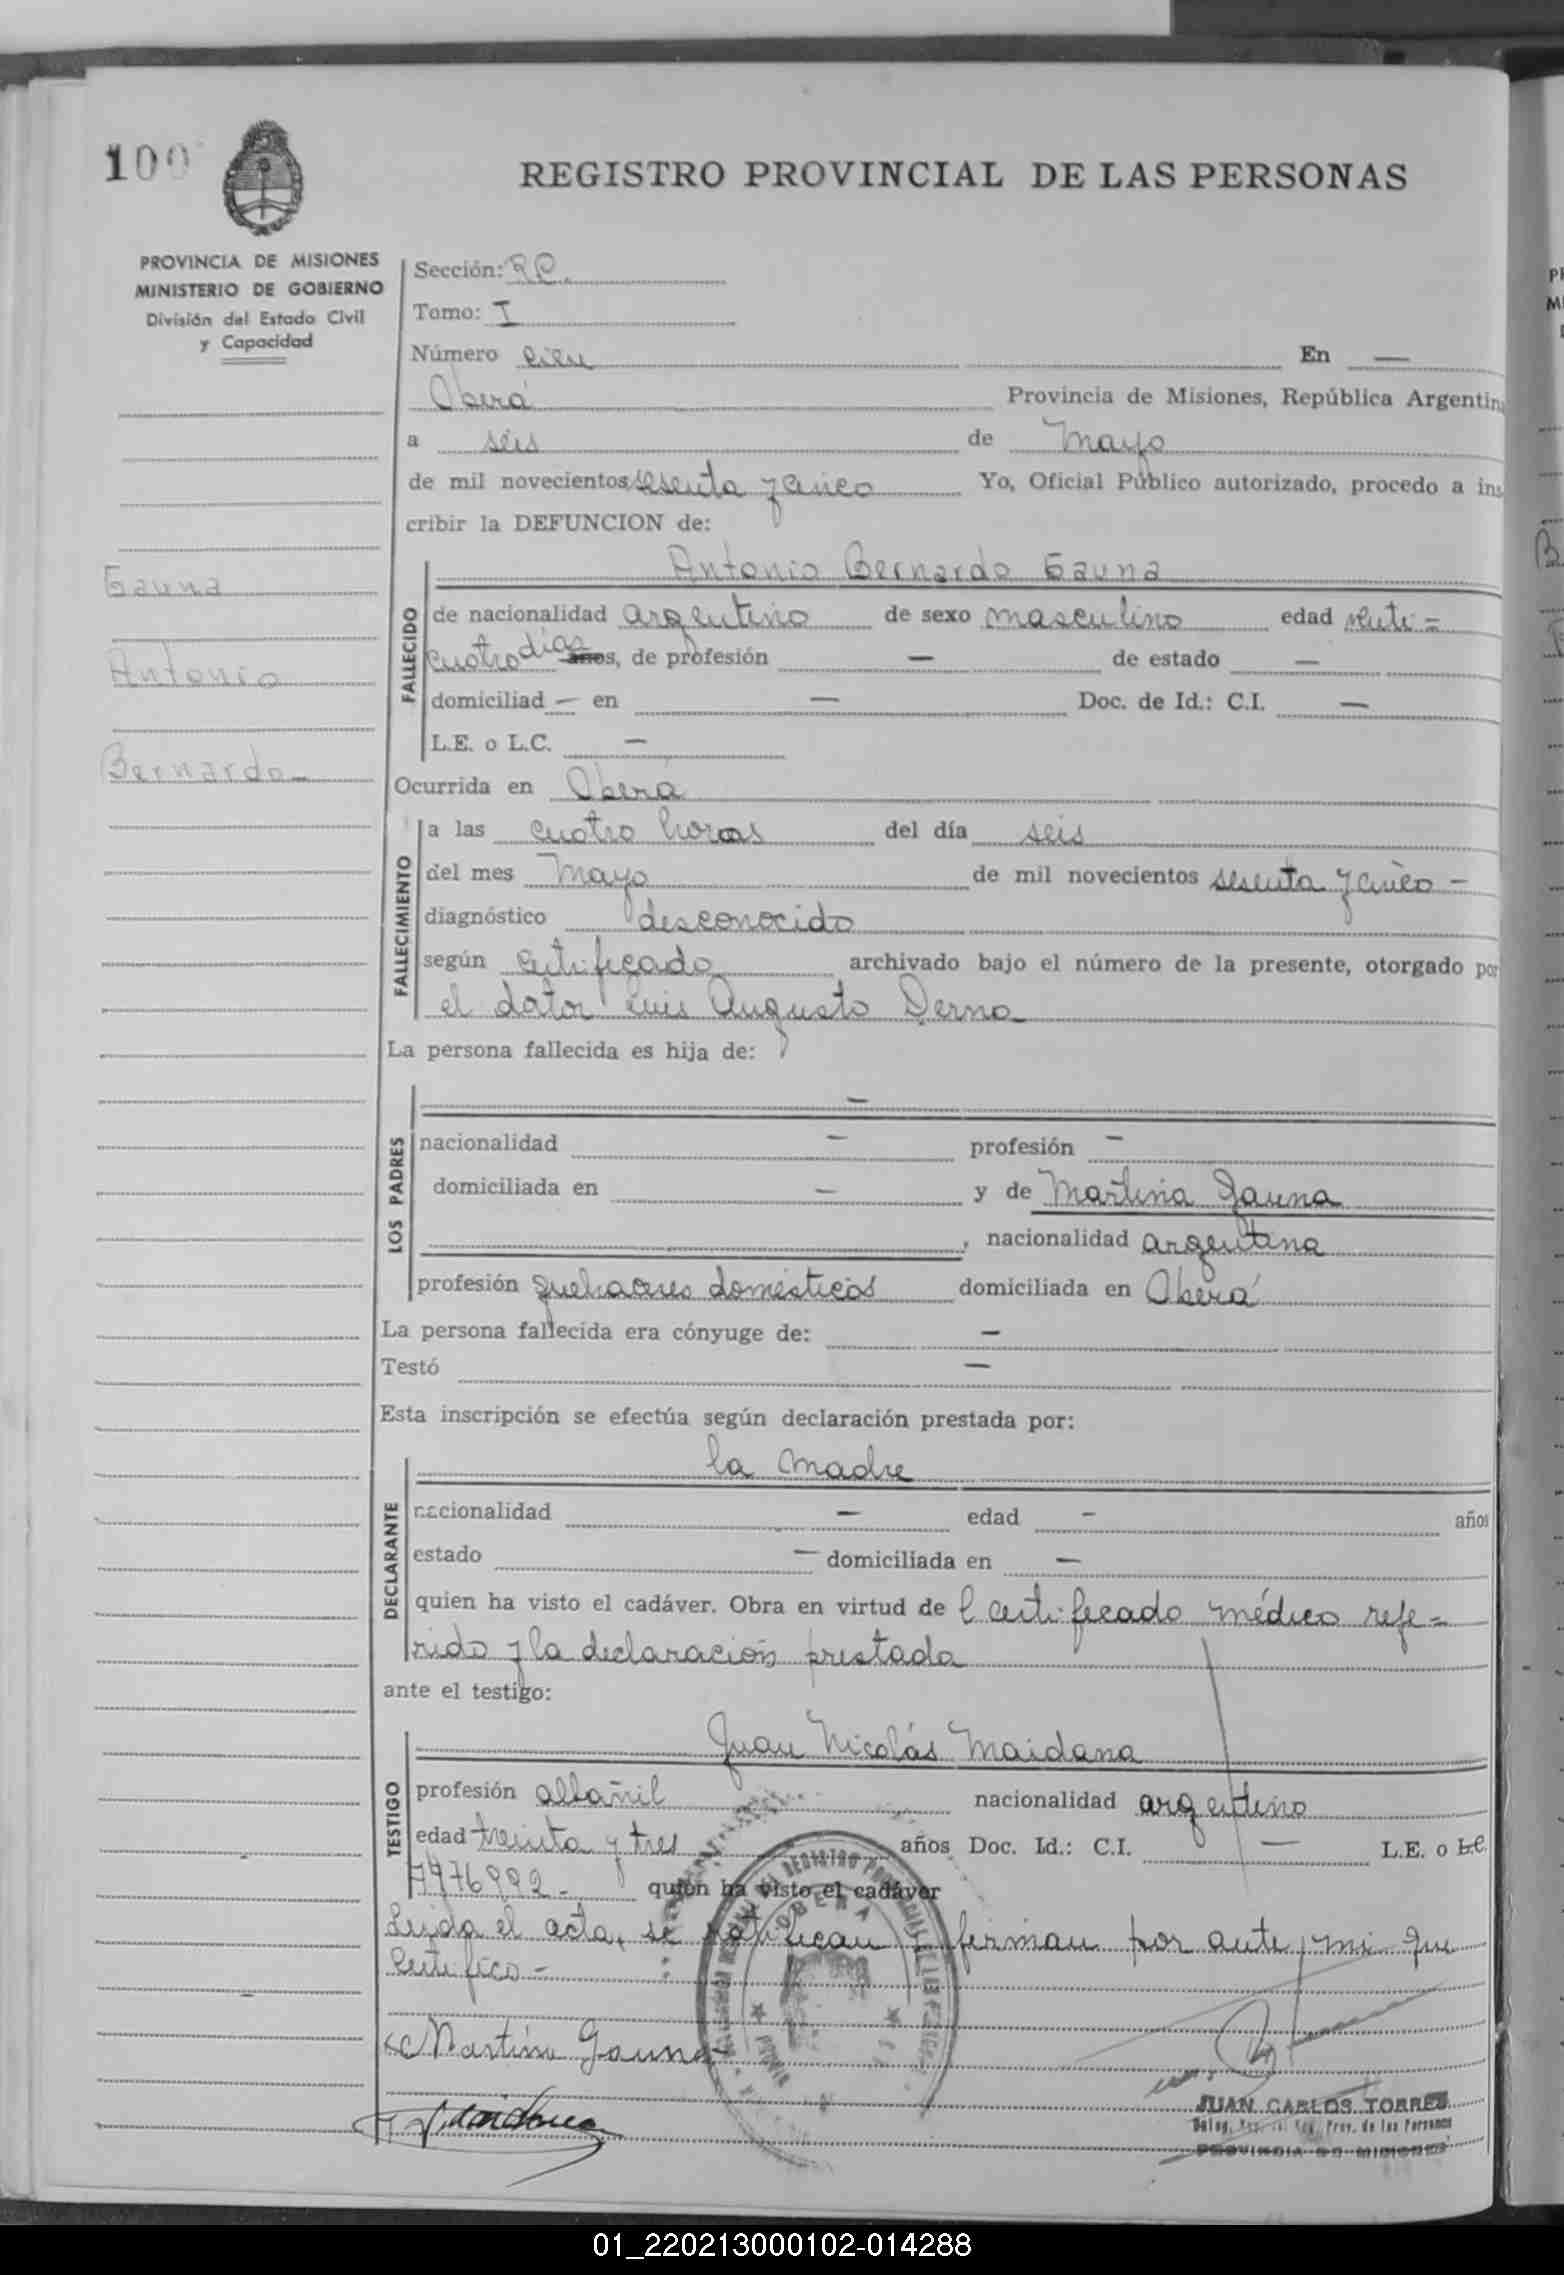 100
REGISTRO PROVINCIAL DE LAS PERSONAS
PROVINCIA DE MISIONES
MINISTERIO DE GOBIERNO
División del Estado Civil
y Capacidad
Gauna
Antonio
Bernardo
Sección: R.P.
Tomo: I
Número cien En —
Oberá Provincia de Misiones, República Argentina
a seis de Mayo
de mil novecientos sesenta y cinco Yo, Oficial Público autorizado, procedo a ins
cribir la DEFUNCION de:
FALLECIDO
Antonio Bernardo Gauna
de nacionalidad argentino de sexo masculino edad veinti=
cuatro días años, de profesión — de estado —
domiciliad — en — Doc. de Id.: C.I. —
L.E. o L.C. —
Ocurrida en Oberá
FALLECIMIENTO
a las cuatro horas del día seis
del mes Mayo de mil novecientos sesenta y cinco —
diagnóstico desconocido
según certificado archivado bajo el número de la presente, otorgado por
el doctor Luis Augusto Derna
La persona fallecida es hija de:
LOS PADRES
—
nacionalidad — profesión —
domiciliada en — y de Martina Gauna
, nacionalidad argentina
profesión quehaceres domésticos domiciliada en Oberá
La persona fallecida era cónyuge de: —
Testó —
Esta inscripción se efectúa según declaración prestada por:
DECLARANTE
la madre
nacionalidad — edad — años
estado — domiciliada en —
quien ha visto el cadáver. Obra en virtud de l certificado médico refe=
rido y la declaración prestada
ante el testigo:
TESTIGO
Juan Nicolás Maidana
profesión albañil nacionalidad argentino
edad treinta y tres años Doc. Id.: C.I. — L.E. o L.C.
7476992- quien ha visto el cadáver
Leida el acta, se ratifican y firman por ante mi que
Certifico -
Martina Gauna
OBERA
JUAN CARLOS TORRES
Prov. de las Personas
PROVINCIA DE MISIONES
01_220213000102-014288